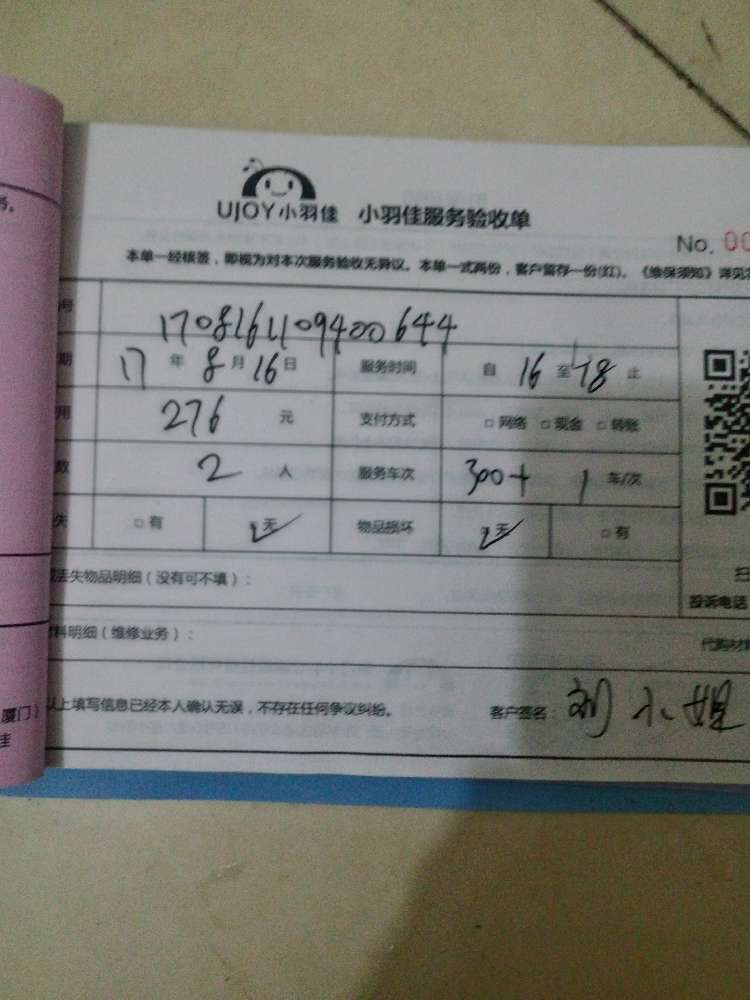 UJOY小羽佳 小羽佳服务验收单
No. 00
本单一经核签，即视为对本次服务验收无异议。本单一式两份，客户留存一份(红)。《维保须知》详见
号 1708161109400644
期 17 年 8 月 16 日 服务时间 自 16 至 18 止
用 276 元 支付方式 □网络 □现金 □转账
数 2 人 服务车次 300+ 1 车/次
失 □有 无 物品损坏 无 □有
丢失物品明细（没有可不填）：
扫
投诉电话
料明细（维修业务）：
代购材料
以上填写信息已经本人确认无误，不存在任何争议纠纷。 客户签名：刘小姐
厦门）
佳